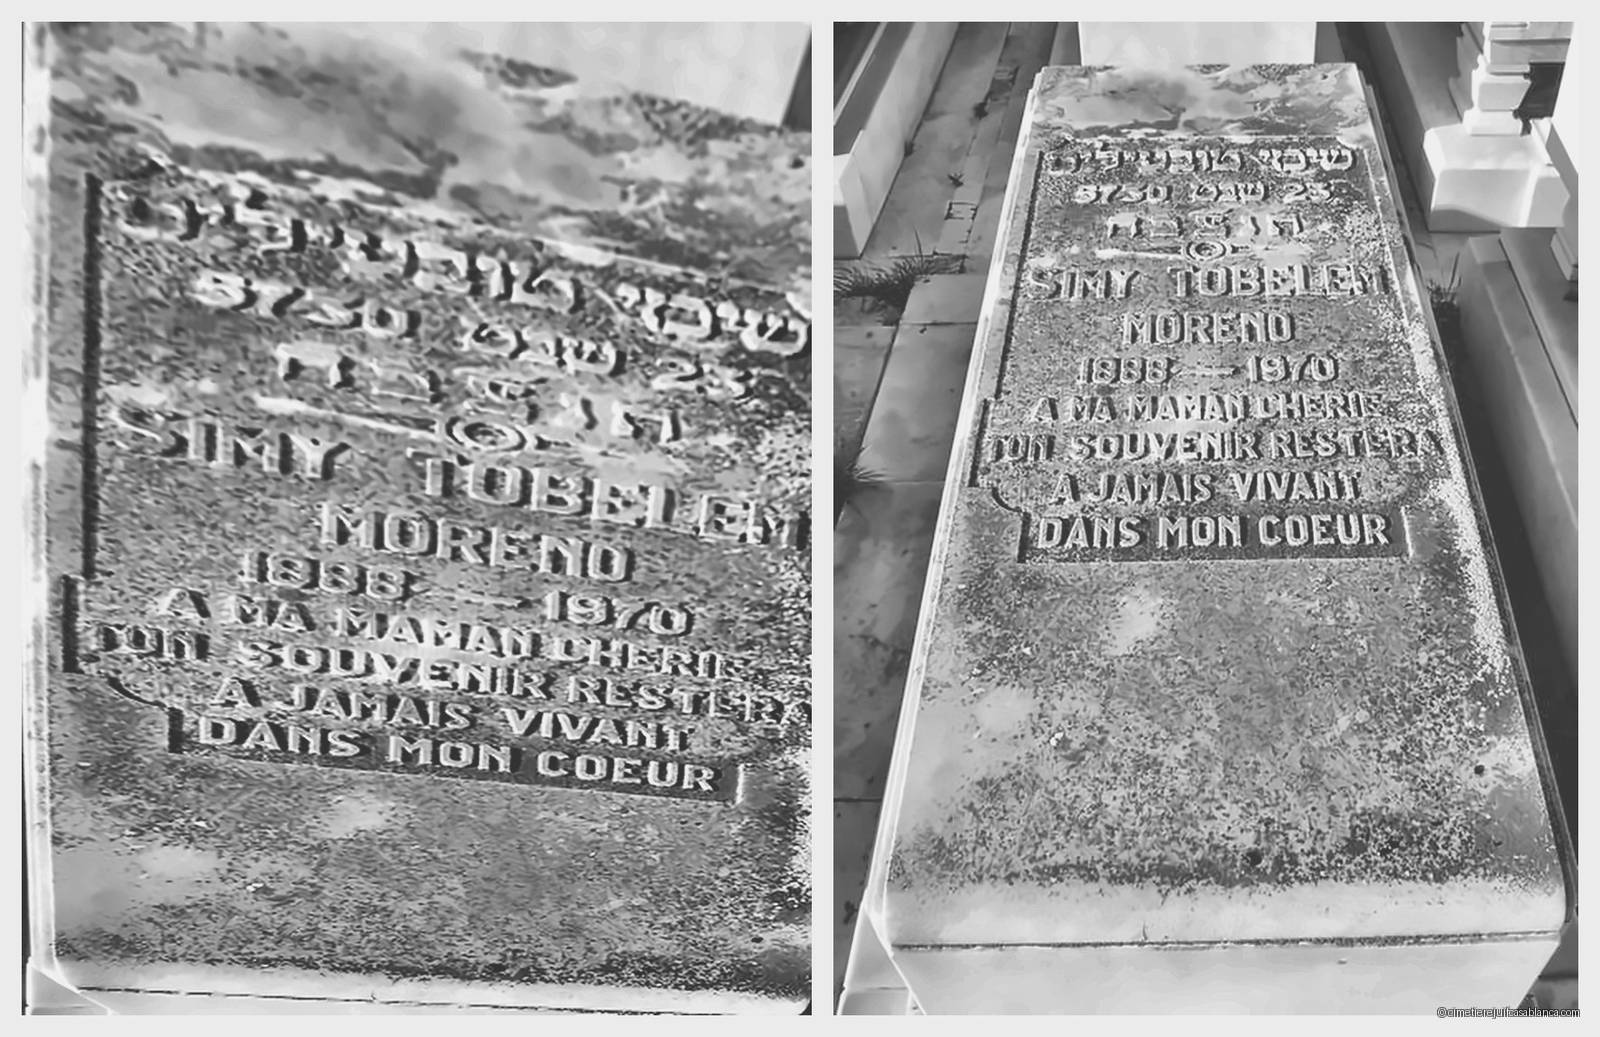 שימי טובײלים
5730 שבט 23
ת נ צ ב ה
SIMY TOBELEM
MORENO
1888 — 1970
A MA MAMAN CHERIE
TON SOUVENIR RESTERA
A JAMAIS VIVANT
DANS MON COEUR
שימי טובײלים
5730 שבט 23
ת נ צ ב ה
SIMY TOBELEM
MORENO
1888 — 1970
A MA MAMAN CHERIE
TON SOUVENIR RESTERA
A JAMAIS VIVANT
DANS MON COEUR
©cimetierejuifcasablanca.com